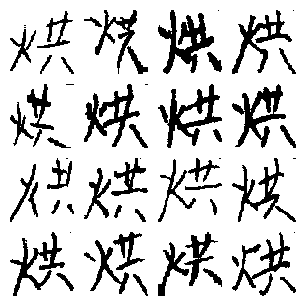 烘烘烘烘
烘烘烘烘
烘烘烘烘
烘烘烘烘